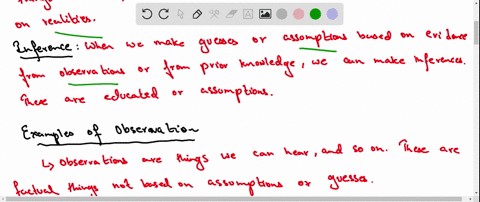 on realities.
Inference: When we make guesses or assumptions based on evidence
from observations or from prior knowledge, we can make inferences.
These are educated or assumptions.
Examples of Observation
↳ Observations are things we can hear, and so on. These are
factual things not based on assumptions or guesses.